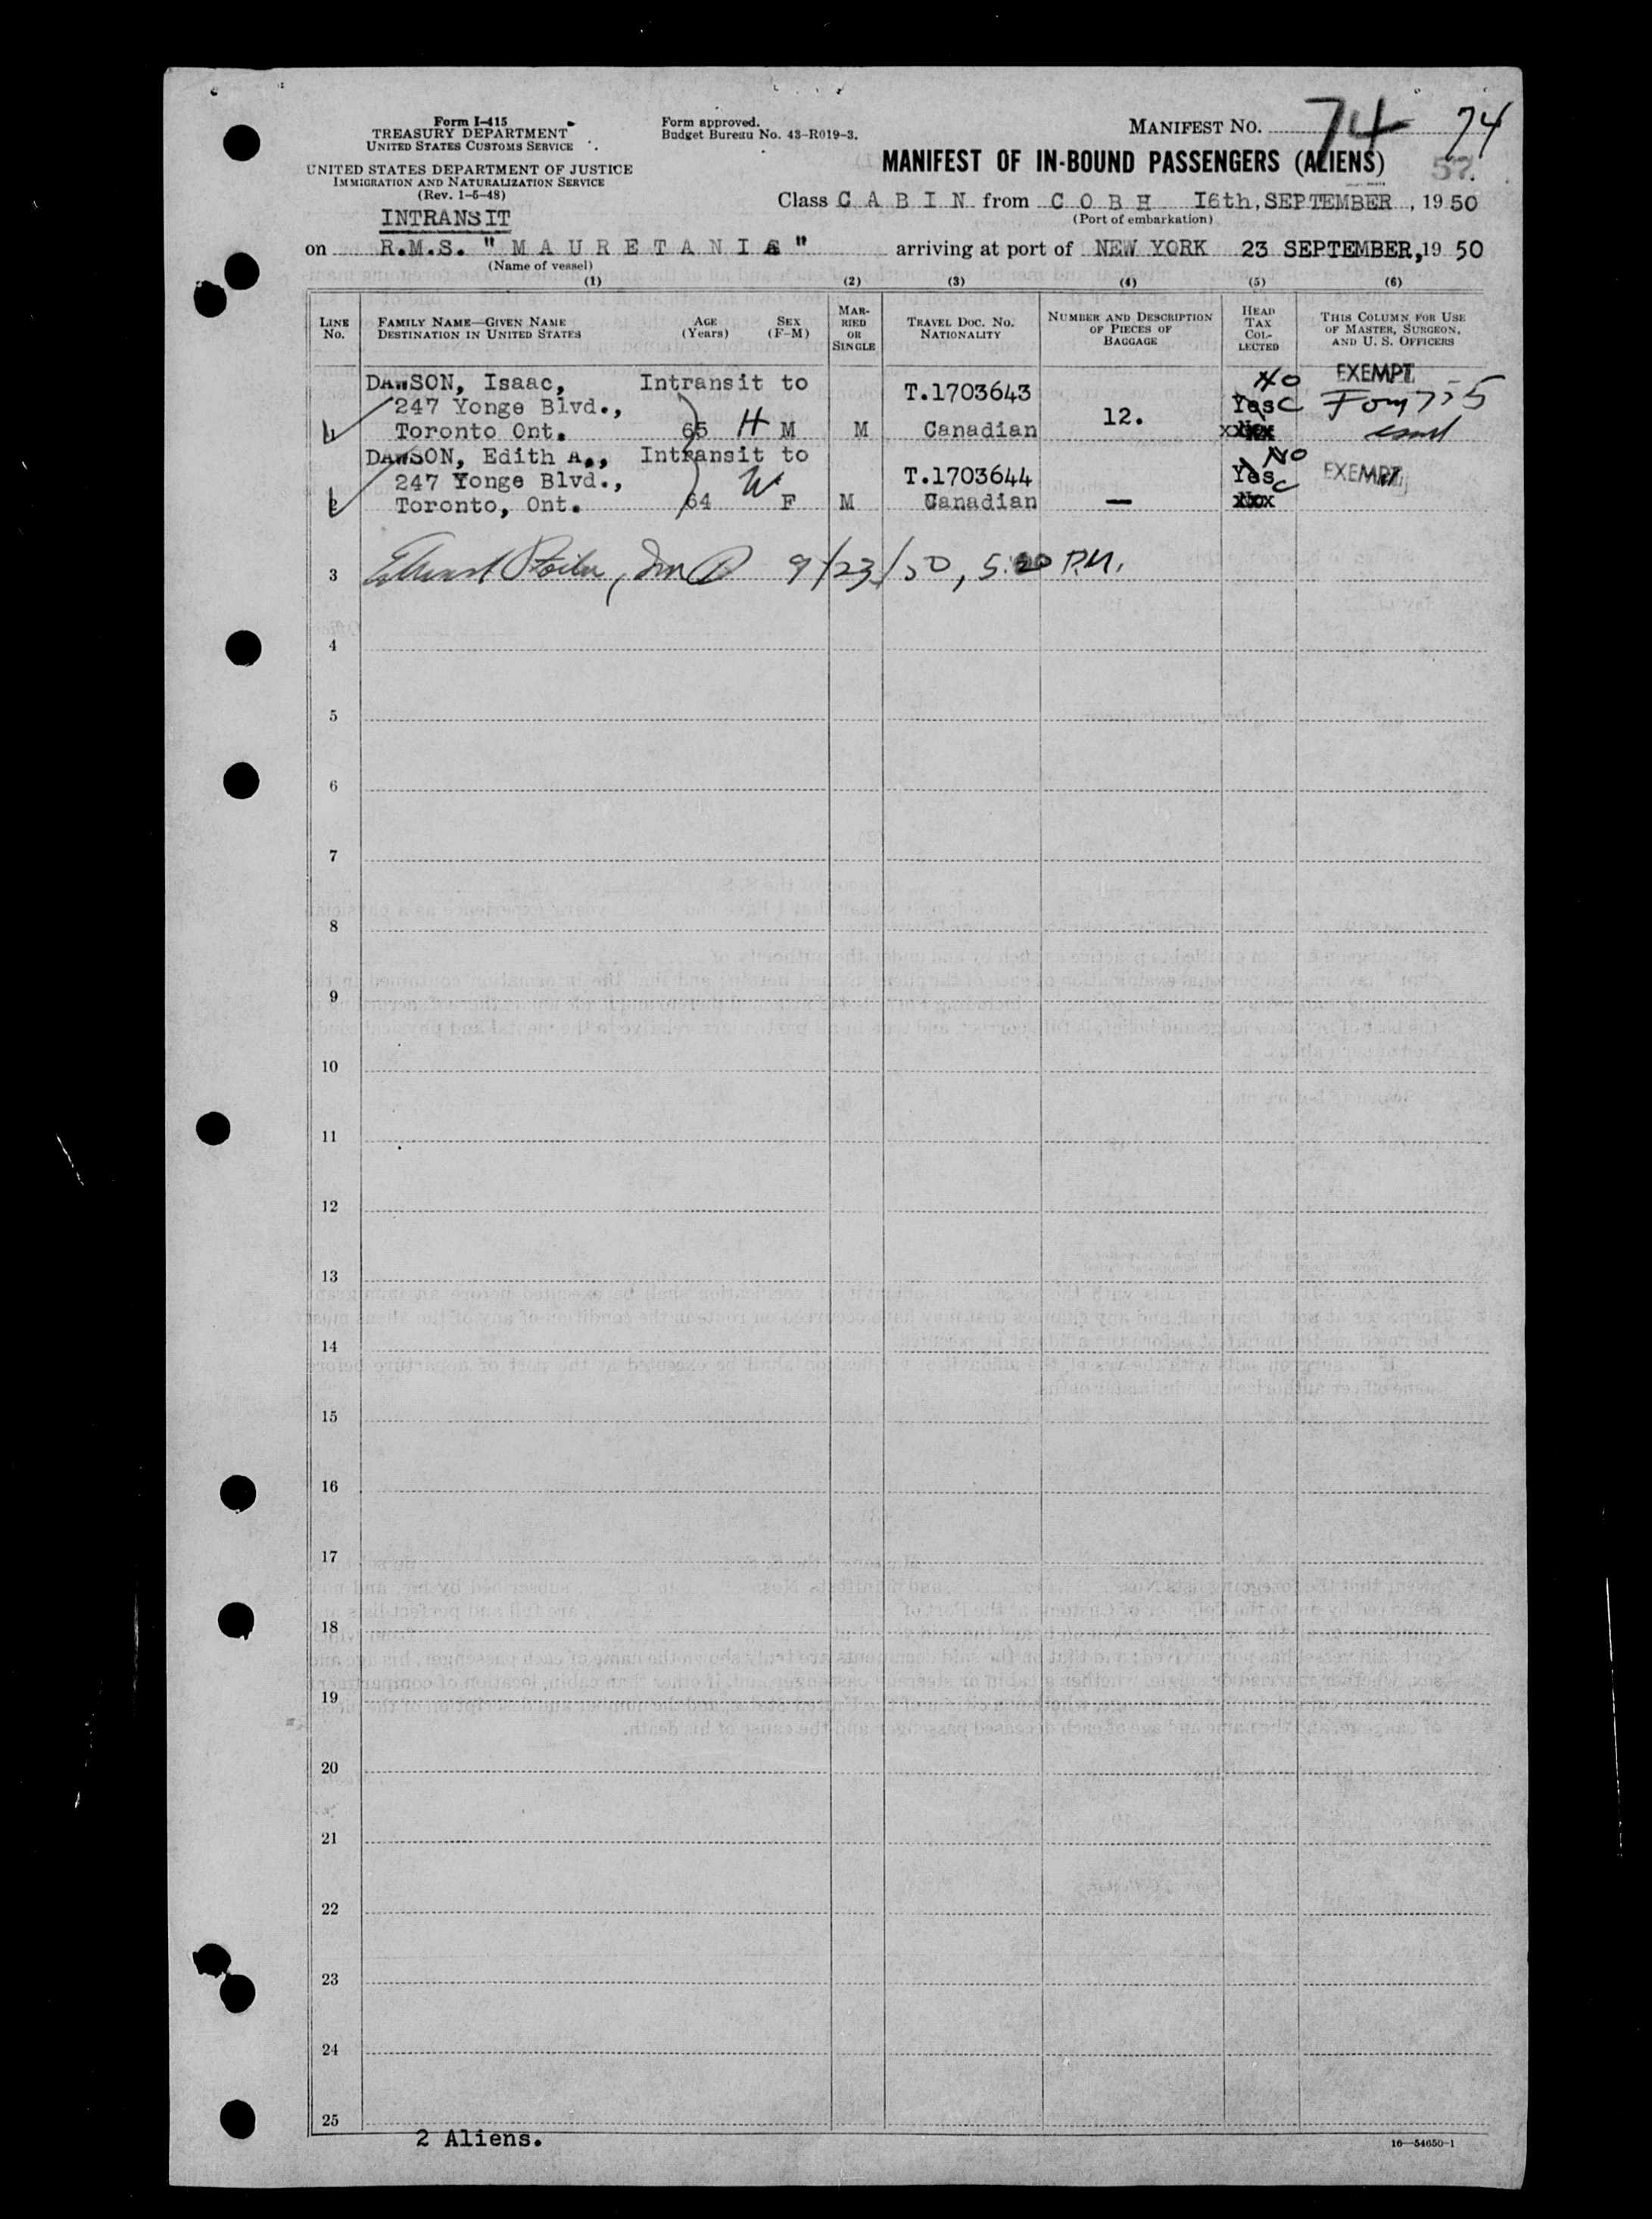 Form I-415
TREASURY DEPARTMENT
UNITED STATES CUSTOMS SERVICE
UNITED STATES DEPARTMENT OF JUSTICE
IMMIGRATION AND NATURALIZATION SERVICE
(Rev. 1-5-48)
INTRANSIT
Form approved.
Budget Bureau No. 43-R019-3.
MANIFEST NO. 74 74
MANIFEST OF IN-BOUND PASSENGERS (ALIENS) 57.
Class C A B I N from C O B H I6th, SEPTEMBER, 19 50
(Port of embarkation)
on R.M.S. " M A U R E T A N I A " arriving at port of NEW YORK 23 SEPTEMBER, 19 50
(Name of vessel)
(1) (2) (3) (4) (5) (6)
LINE NO.
FAMILY NAME—GIVEN NAME
DESTINATION IN UNITED STATES
AGE (Years)
SEX (F-M)
MARRIED OR SINGLE
TRAVEL DOC. NO.
NATIONALITY
NUMBER AND DESCRIPTION OF PIECES OF BAGGAGE
HEAD TAX COLLECTED
THIS COLUMN FOR USE OF MASTER, SURGEON, AND U. S. OFFICERS
DAWSON, Isaac, Intransit to T.1703643 No EXEMPT
247 Yonge Blvd., 12. Yes C
1 Toronto Ont. 65 H M M Canadian
DAWSON, Edith A., Intransit to No
247 Yonge Blvd., W T.1703644 Yes C EXEMPT
2 Toronto, Ont. 64 F M Canadian —
3 9/23/50, 5:20 P.M.
4
5
6
7
8
9
10
11
12
13
14
15
16
17
18
19
20
21
22
23
24
25
2 Aliens.
16—54650-1